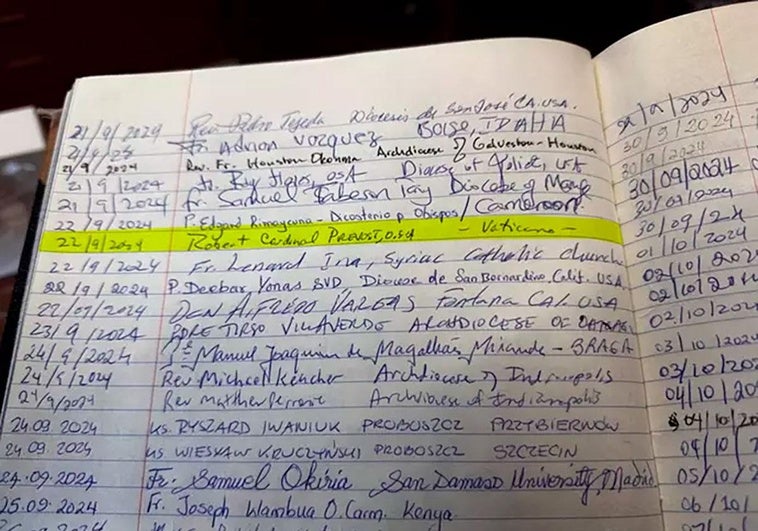 21/9/2024 Rev. Pedro Tejeda Diocesis de San José CA. USA.
Fr. Adrian Vazquez BOISE, IDAHA
21/9/2024 Rev. Fr. Houston Okonma Archdiocese of Galveston-Houston
21/9/2024 Fr. Ray Flores, OSA Diocese of Joliet, USA
21/9/2024 Fr. Samuel Diocese of
22/9/2024 P. Edgard Rimaycuna - Dicasterio p. Obispos/Cameroon
22/9/2024 Robert Cardinal PREVOST, O.S.A - Vaticano -
22/9/2024 Fr. Lenard Ina, Syriac Catholic church
22/9/2024 P. Deebar Yonas SVD, Diocese de San Bernardino, Calif. USA
22/09/2024 DON ALFREDO VARGAS Fontana CAL. USA
23/9/2024 PDRE TIRSO VILLAVERDE ARCHDIOCESE OF
24/9/2024 Pe Manuel Joaquim de Magalhães Miranda - BRAGA
24/9/2024 Rev Michael Keucher Archdiocese of Indianapolis
24/9/2024 Rev Matthew Perronie Archdiocese of Indianapolis
24.09.2024 KS. RYSZARD IWANIUK PROBOSZCZ PRZYBIERNÓW
24.09.2024 KS WIESŁAW KRUCZYŃSKI PROBOSZCZ SZCZECIN
24.09.2024 Fr. Samuel Okiria San Damaso University, Madrid
25.09.2024 Fr. Joseph Wambua O.Carm. Kenya
30/9/2024
30/9/2024
30/09/2024
30/09/2024
30/09/24
01/10/2024
02/10/2024
02/10/2024
02/10/2024
03/10/2024
03/10/20
04/10/20
04/10/20
04/10/
05/10/2
06/10/